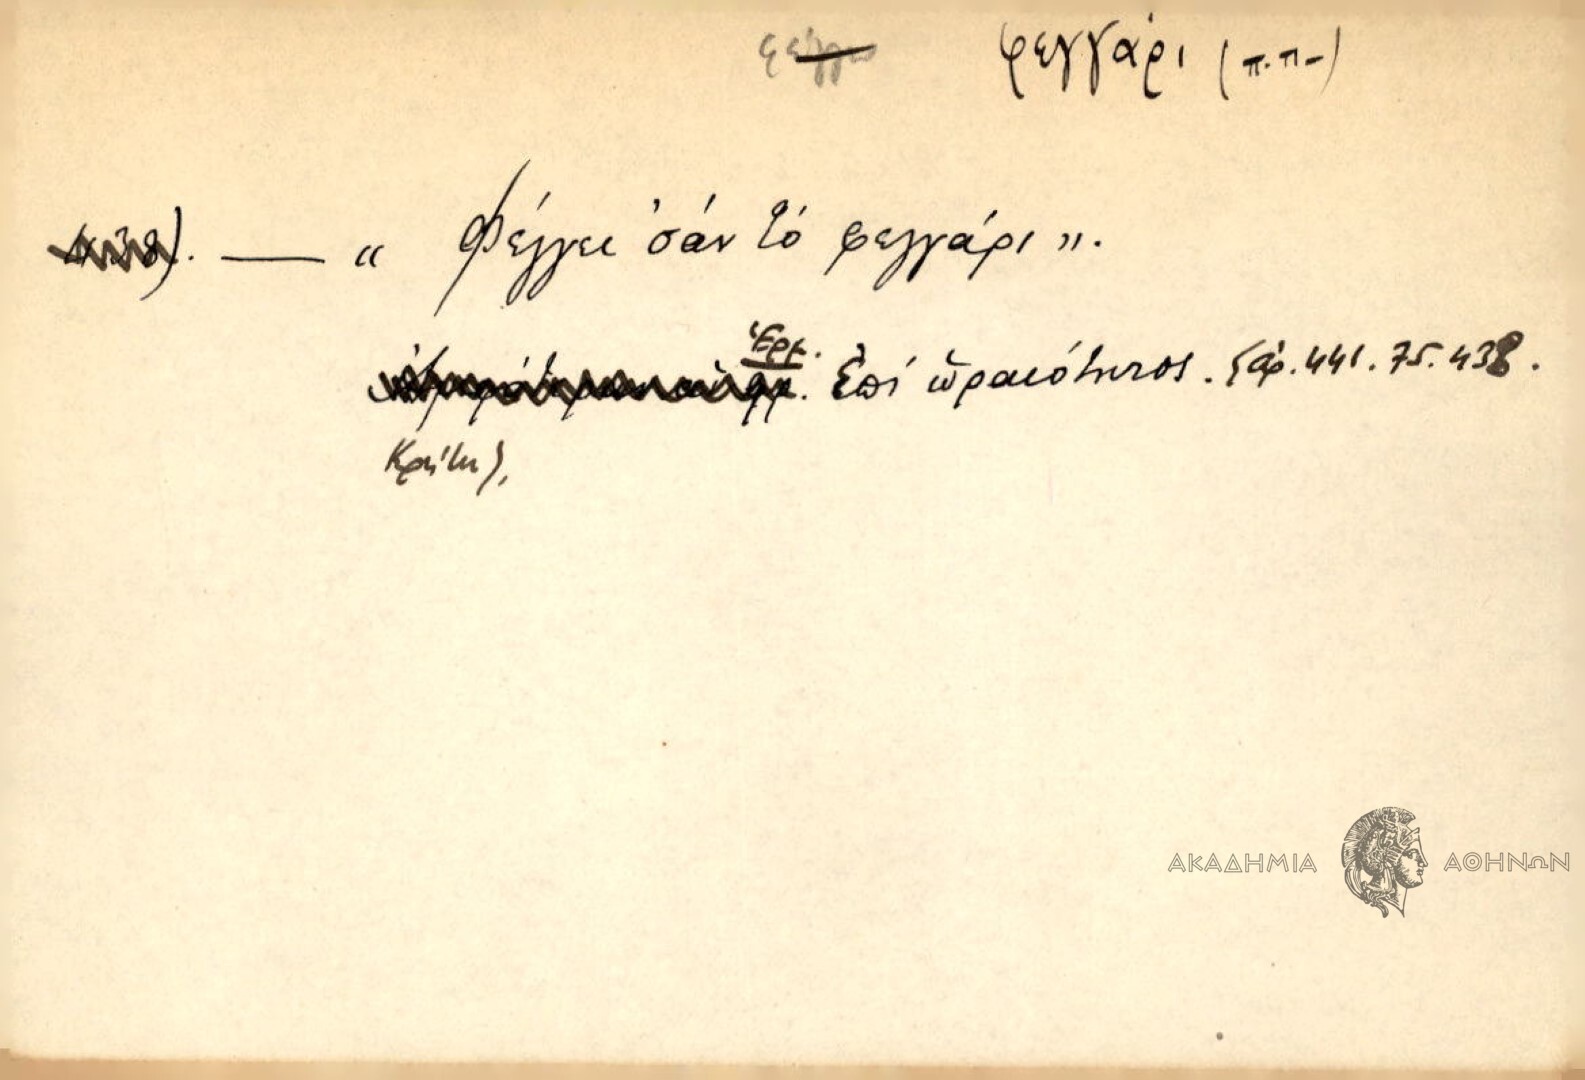 φέγγω φεγγάρι (π.π-)
438). — « Φέγγει 'σάν τό φεγγάρι ».
Ἑρμ. Ἐπί ὡραιότητος. {άρ. 441. 75. 438.
Κρήτη},
ΑΚΑΔΗΜΙΑ ΑΘΗΝΩΝ